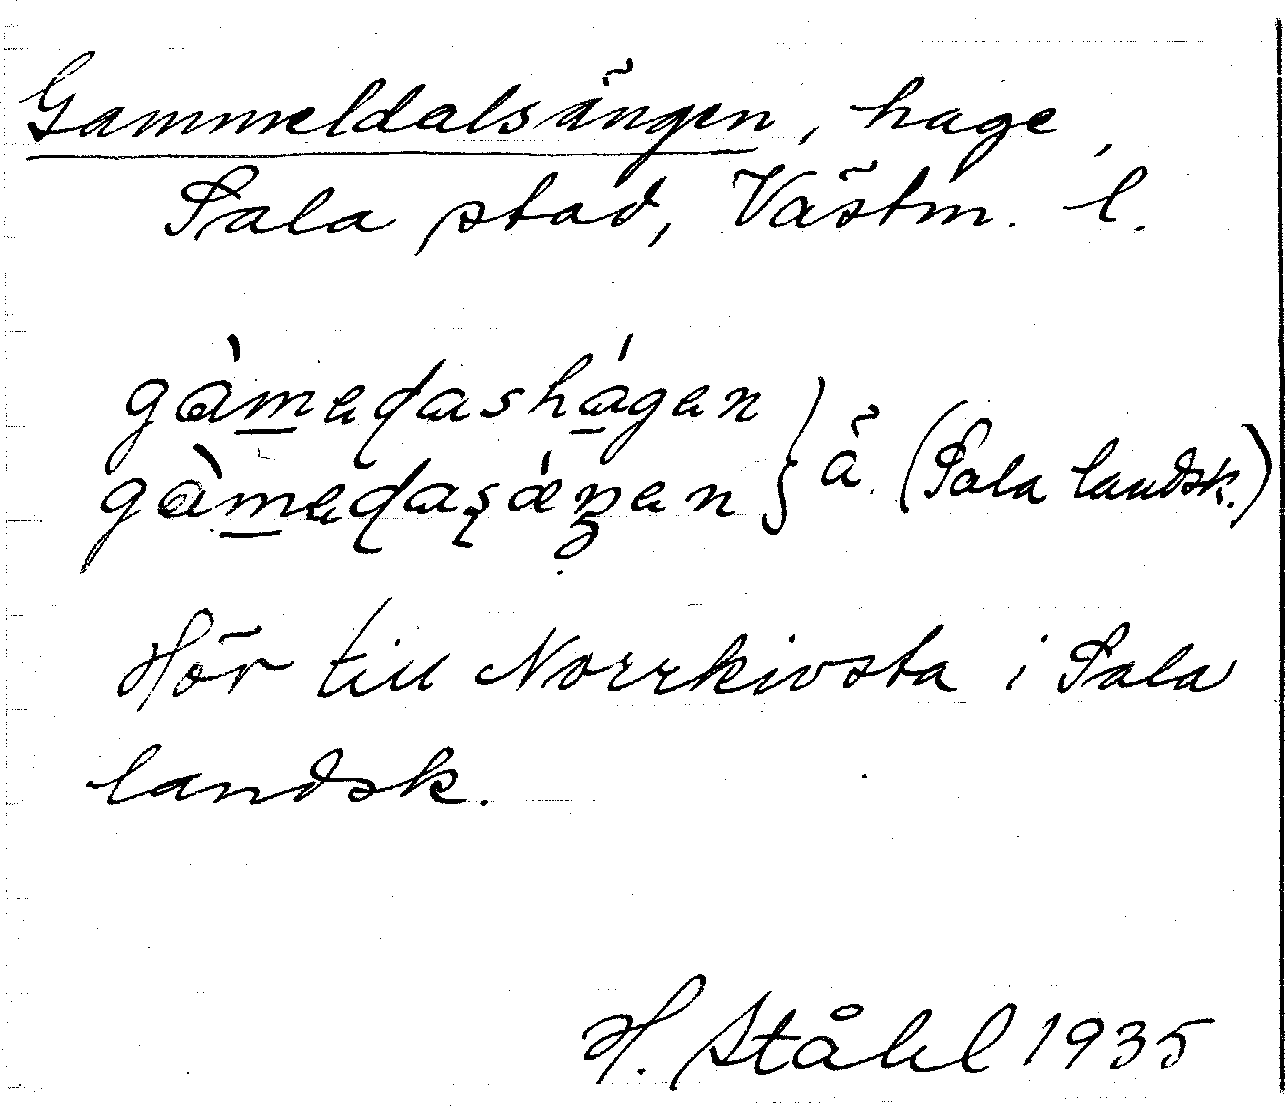 Gammeldalsängen, hage,
Sala stad, Västm. l.
gàmedashágen
gàmedasǽŋen } ä. (Sala landsk.)
Hör till Norrkivsta i Sala
landsk.
H. Ståhl 1935